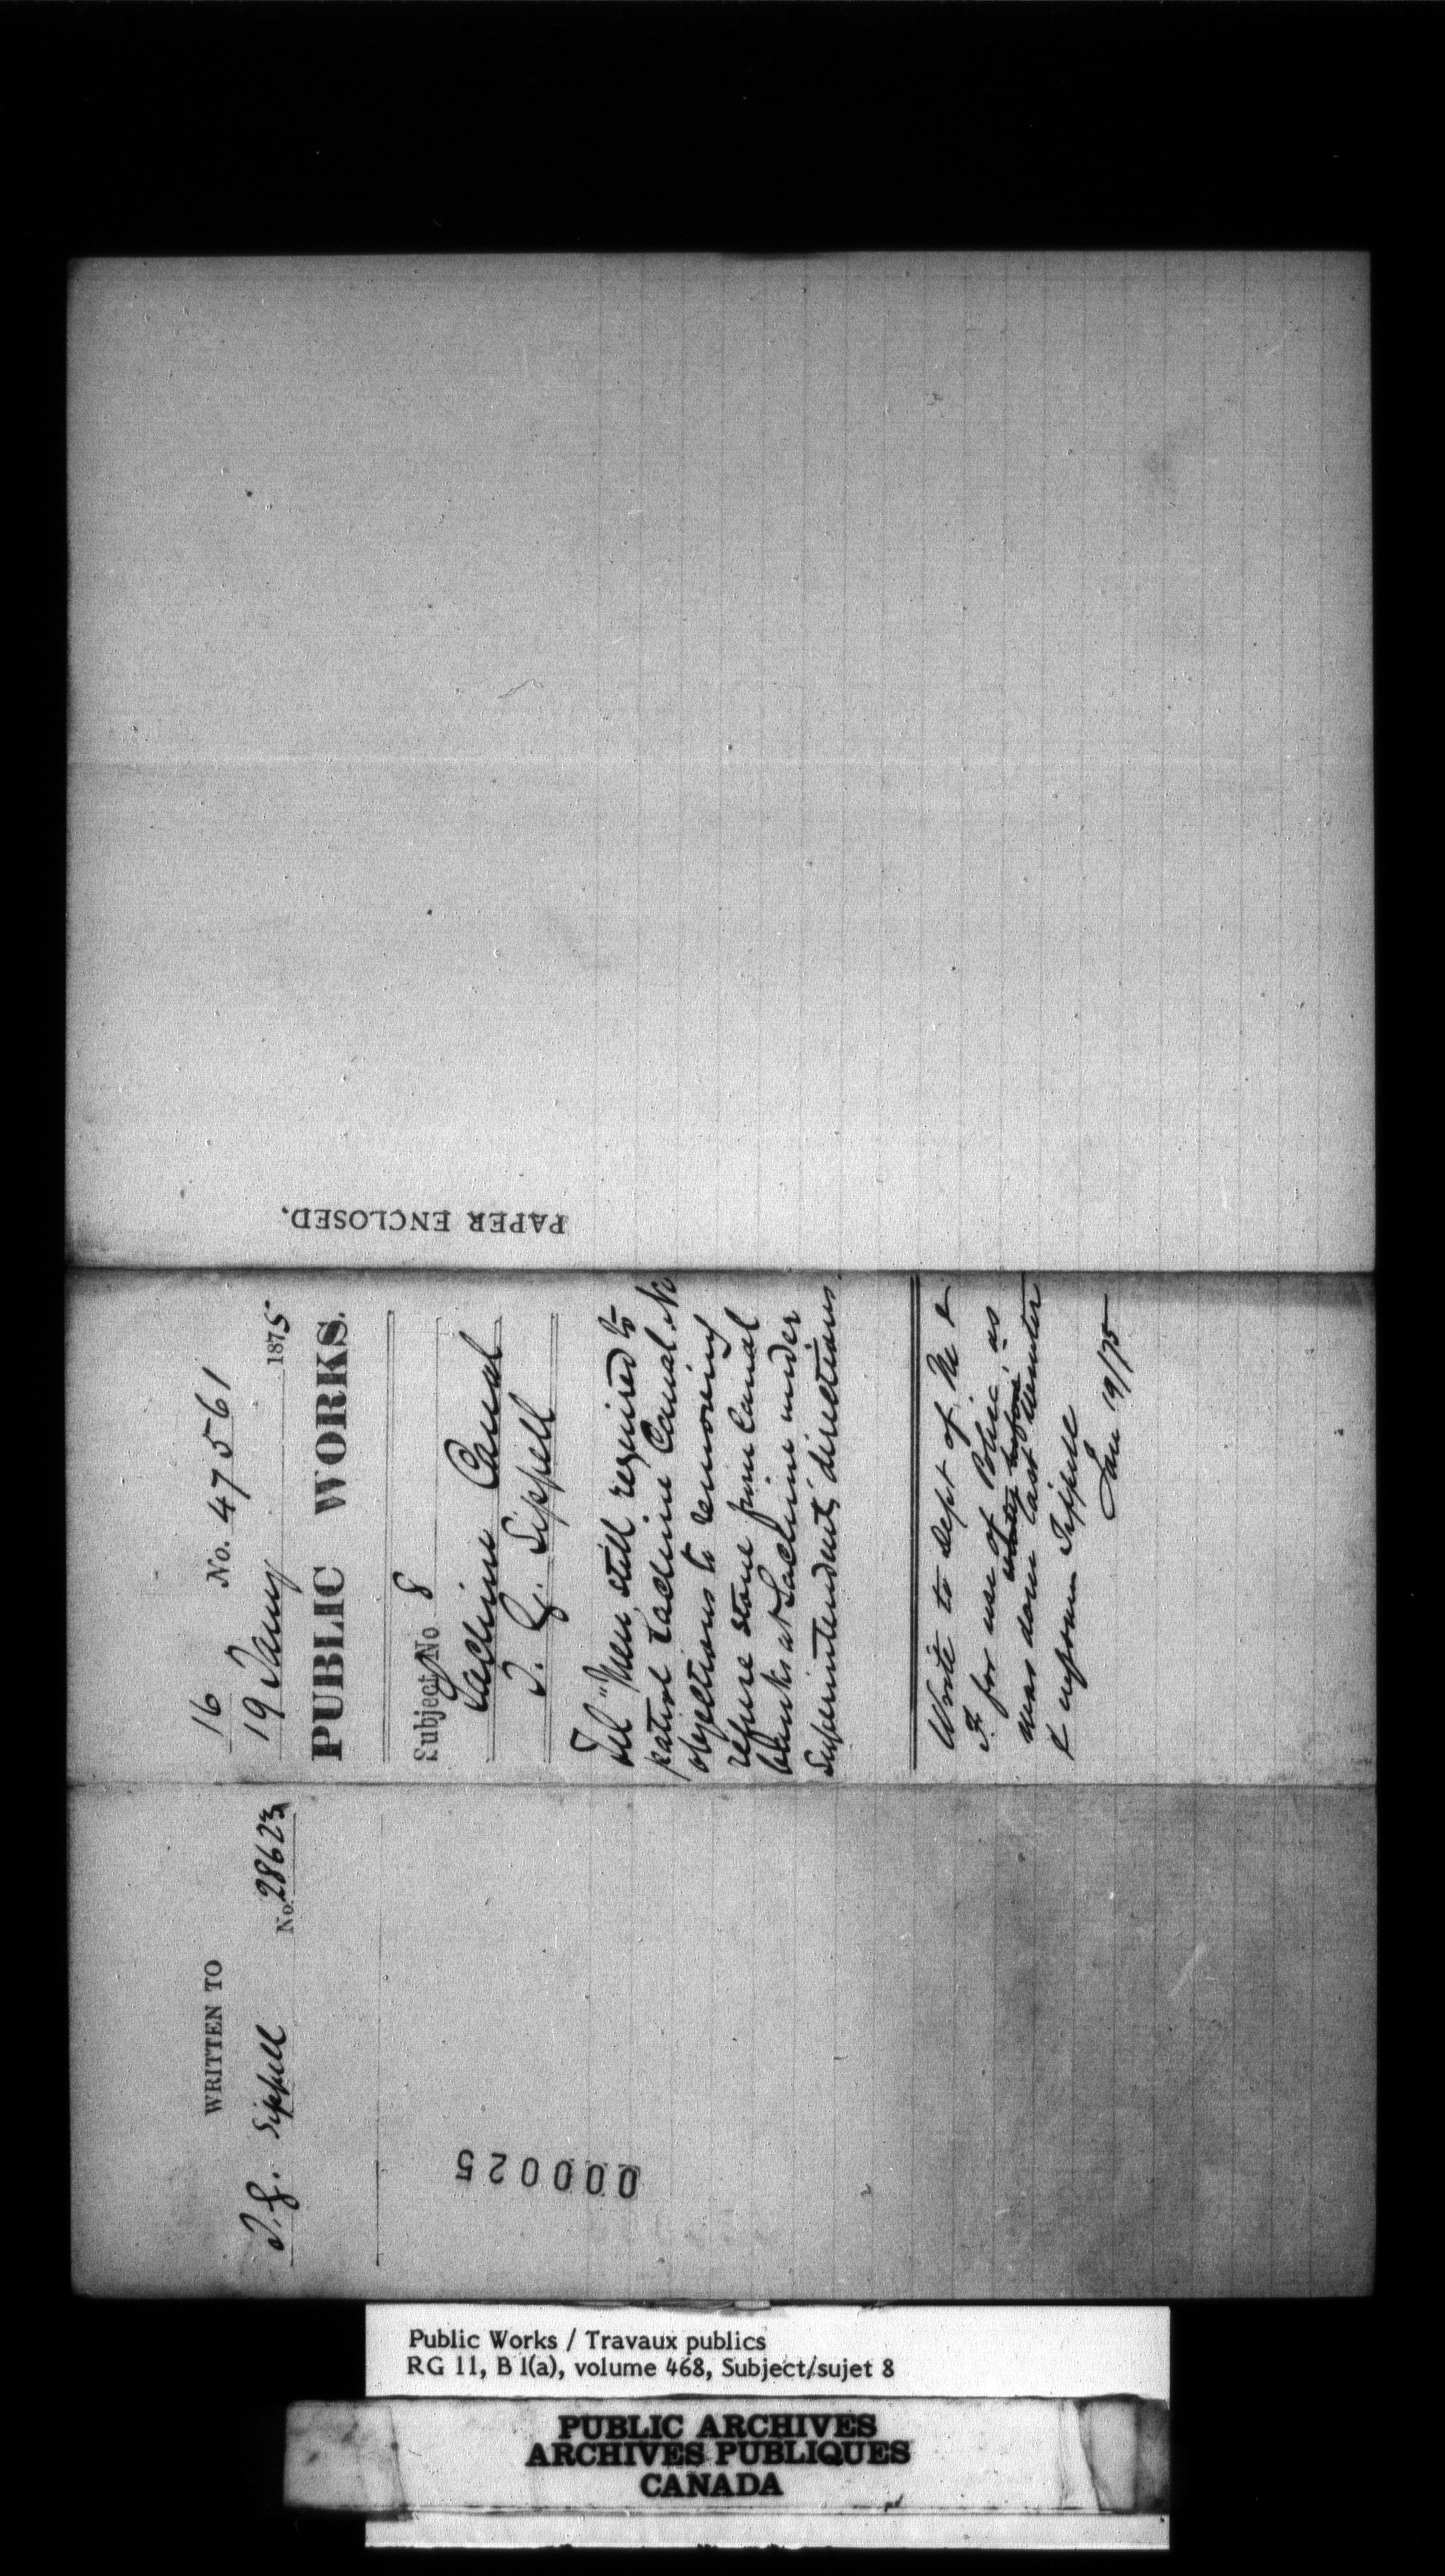 16 No. 47561
19 Jany 1875
PUBLIC WORKS.
Subject No 8
Lachine Canal
J. G. Sippell
Tel "Men still required to
patrol Lachine Canal. No
objections to removing
refuse stone from Canal
banks at Lachine under
Superintendent's directions.
Write to Dept of M &
F for use of Police, as
was done last winter
& inform Sippell
Jan 19/75
WRITTEN TO
J. G. Sippell No. 28623
PAPER ENCLOSED.
000025
Public Works / Travaux publics
RG 11, B 1(a), volume 468, Subject/sujet 8
PUBLIC ARCHIVES
ARCHIVES PUBLIQUES
CANADA